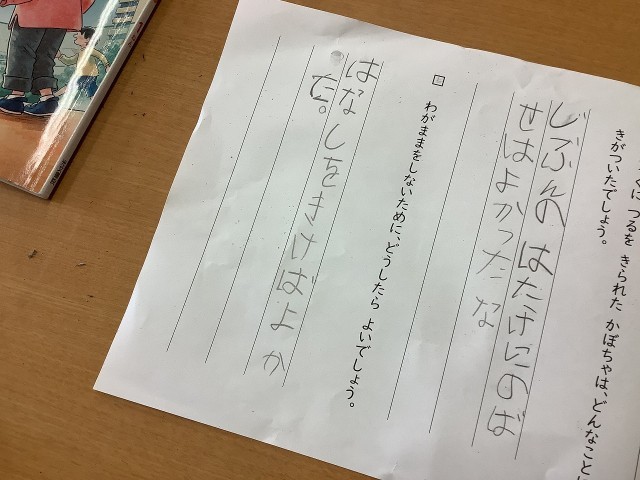 くに つるを きられた かぼちゃは、どんなことに
きがついたでしょう。
じぶんの はたけにのば
せはよかったな
□ わがままをしないために、どうしたら よいでしょう。
はなしをきけばよか
た。